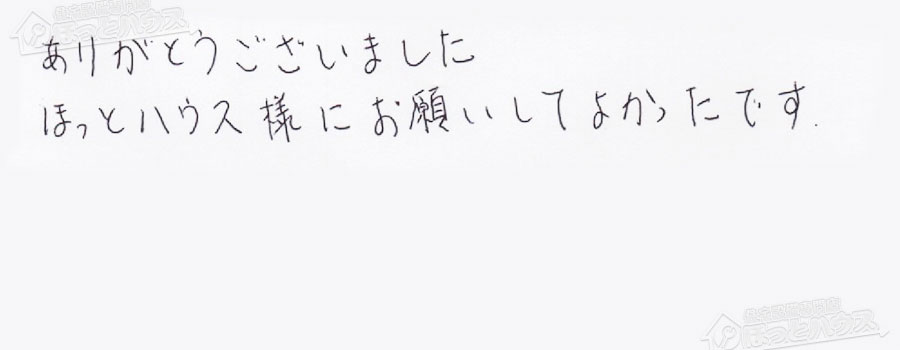 ありがとうございました
ほっとハウス様にお願いしてよかったです.
ほっとハウス
ほっとハウス